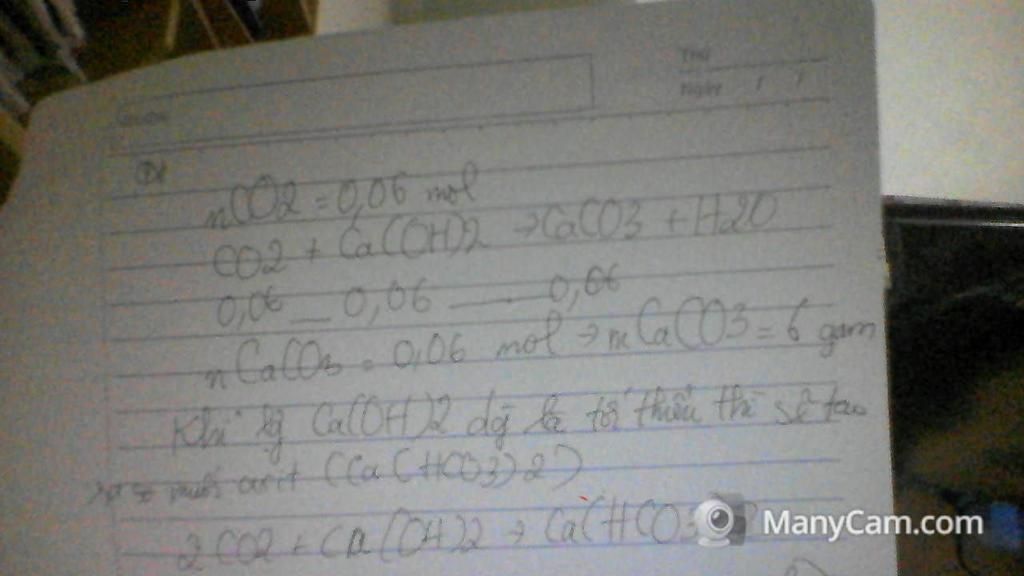 Thứ
Ngày / /
nCO2 = 0,06 mol
CO2 + Ca(OH)2 → CaCO3 + H2O
0,06 — 0,06 — 0,06
nCaCO3 = 0,06 mol → mCaCO3 = 6 gam
Khi Ca(OH)2 tối thiểu thì sẽ tạo
muối axit (Ca(HCO3)2)
2CO2 + Ca(OH)2 → Ca(HCO3
ManyCam.com